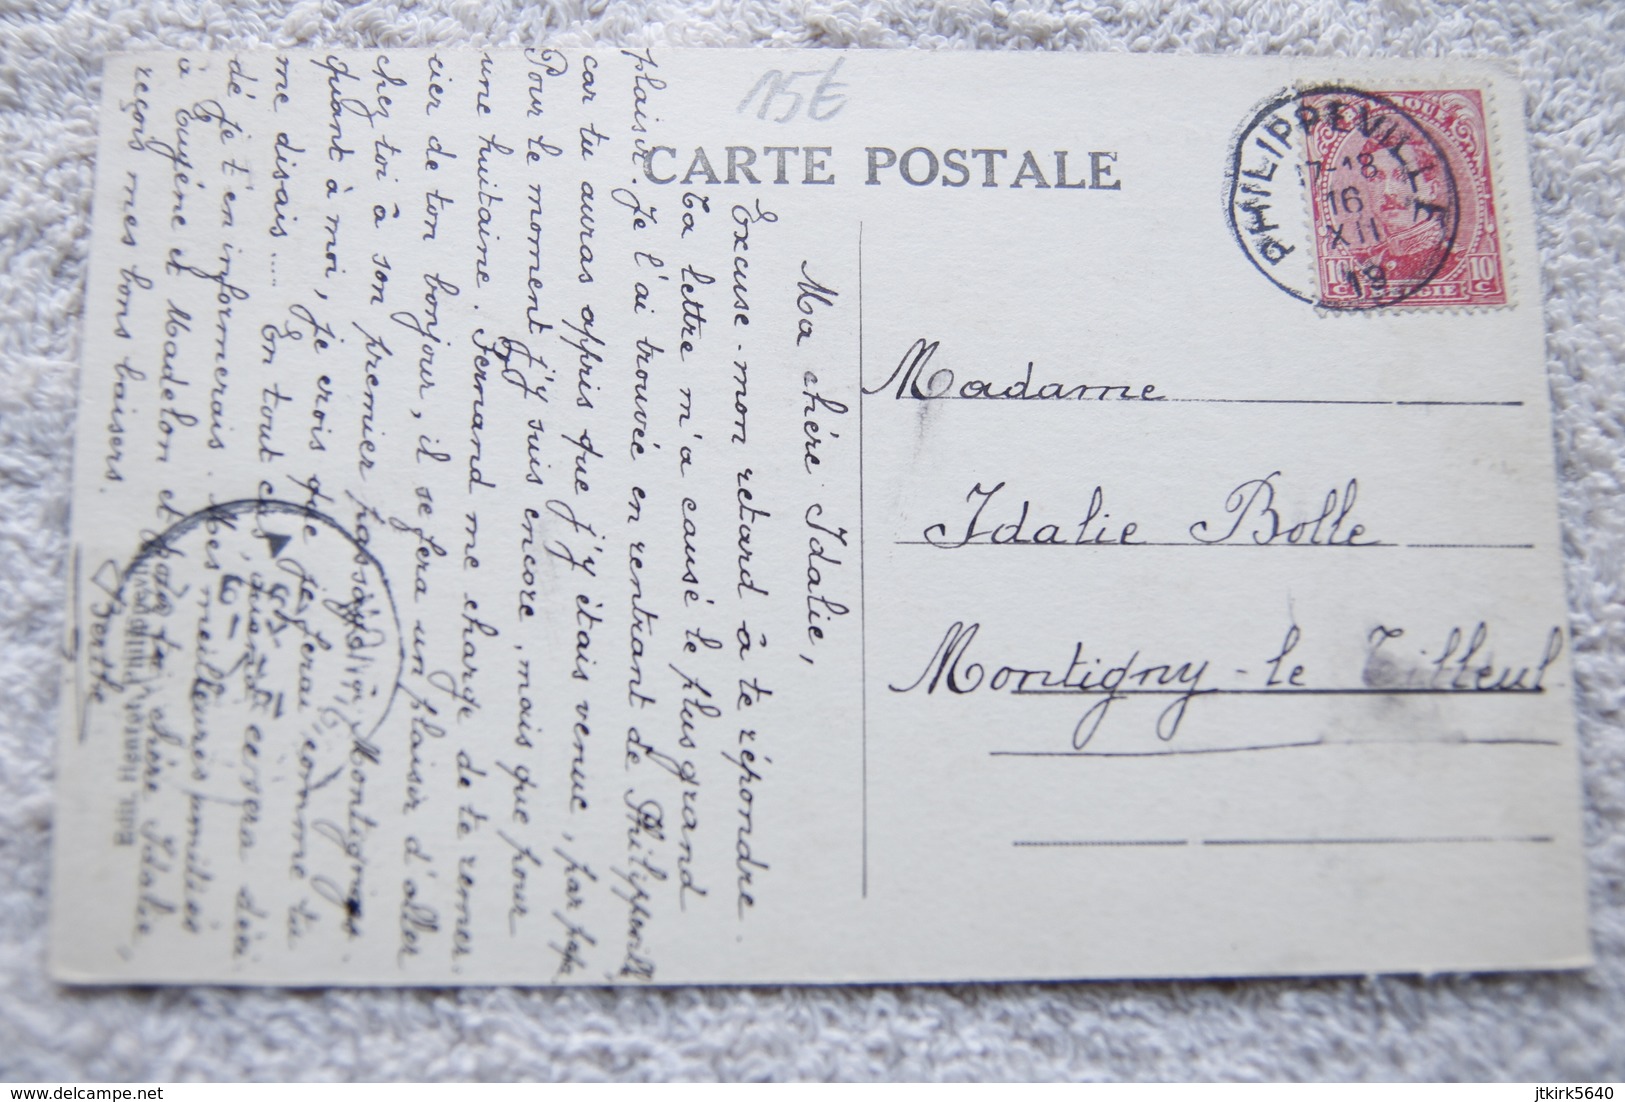 15€
CARTE POSTALE
BELGIQUE
10 C BELGIE 10 C
PHILIPPEVILLE
7-18
16
XII
19
Madame
Idalie Bolle
Montigny-le Tilleul
Ma chère Idalie,
Excuse-mon retard à te répondre.
Ta lettre m'a causé le plus grand
plaisir. Je l'ai trouvée en rentrant de Philippeville
car tu auras appris que j'y étais venue, par papa
Pour le moment j'y suis encore, mais que pour
une huitaine. Fernand me charge de te remer-
cier de ton bonjour, il se fera un plaisir d'aller
chez toi à son premier passage à Montignies.
quant à moi, je crois que je ferai comme tu
me disais..... En tout cas, quand ce sera déci-
dé je t'en informerais. Mes meilleures amitiés
à Eugène et Madelon et pour toi chère Idalie,
reçois mes bons baisers.
Berthe
Edit.
delcampe.net
jtkirk5640